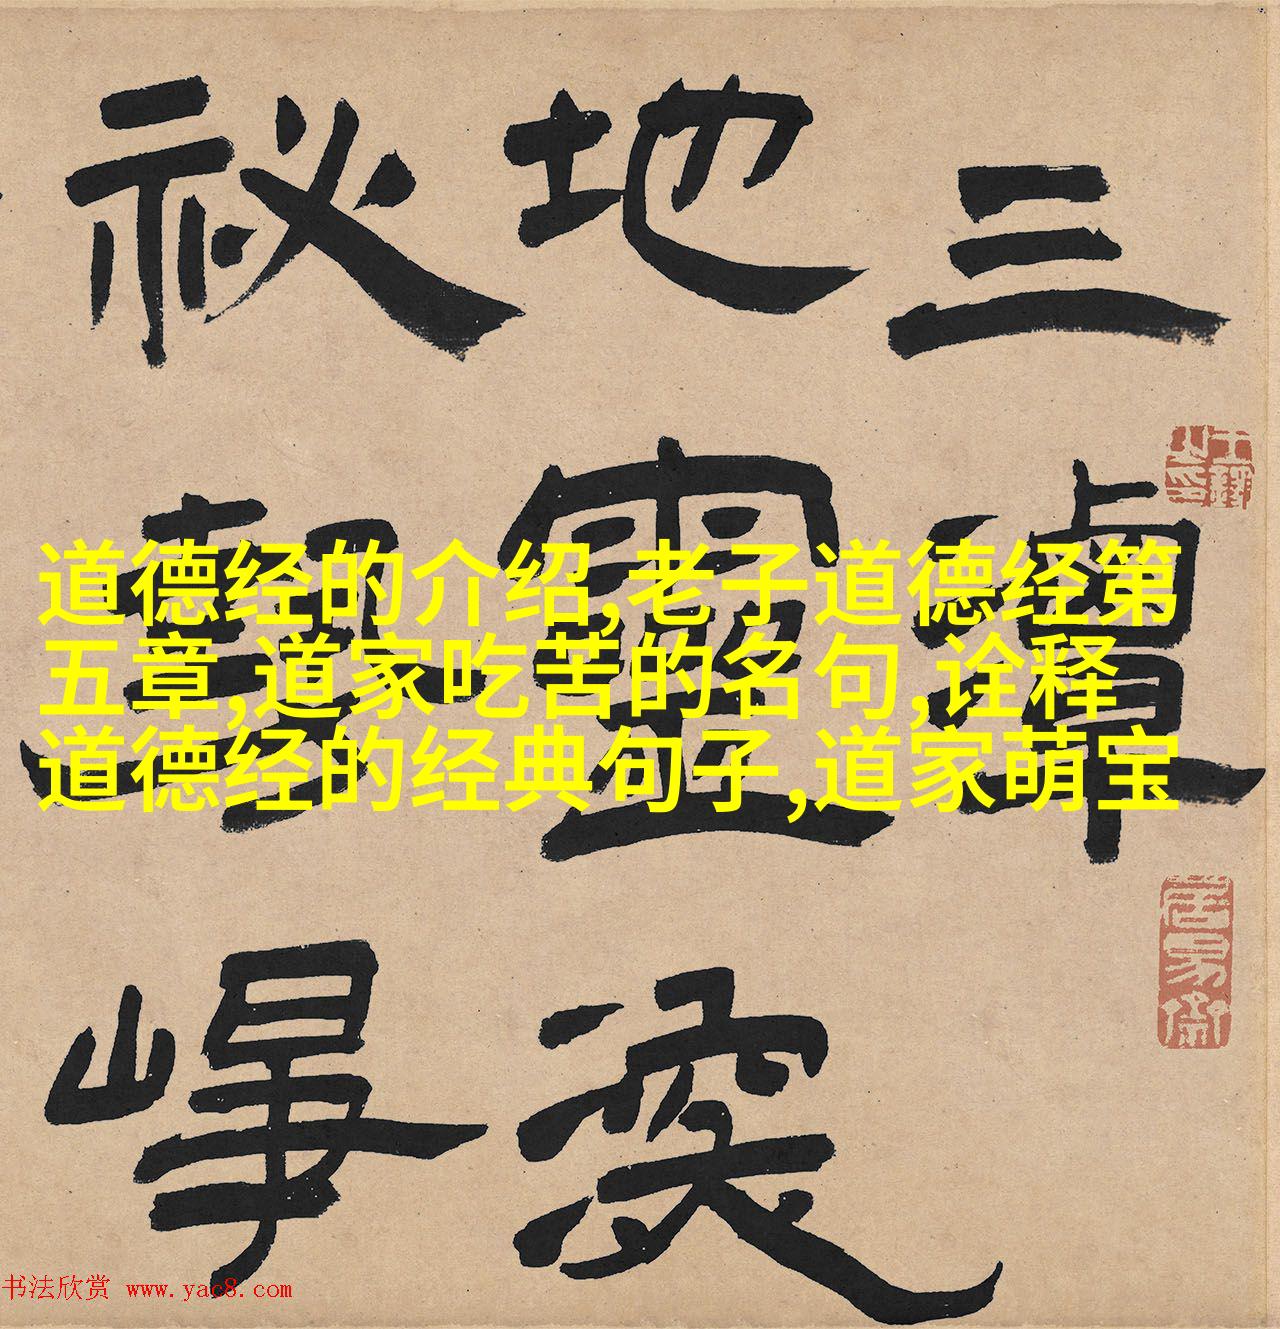 三
地靈
祕勢崢
道德经的介绍,老子道德经第
五章,道家吃苦的名句,诠释
道德经的经典句子,道家萌宝
书法欣赏 www.yac8.com